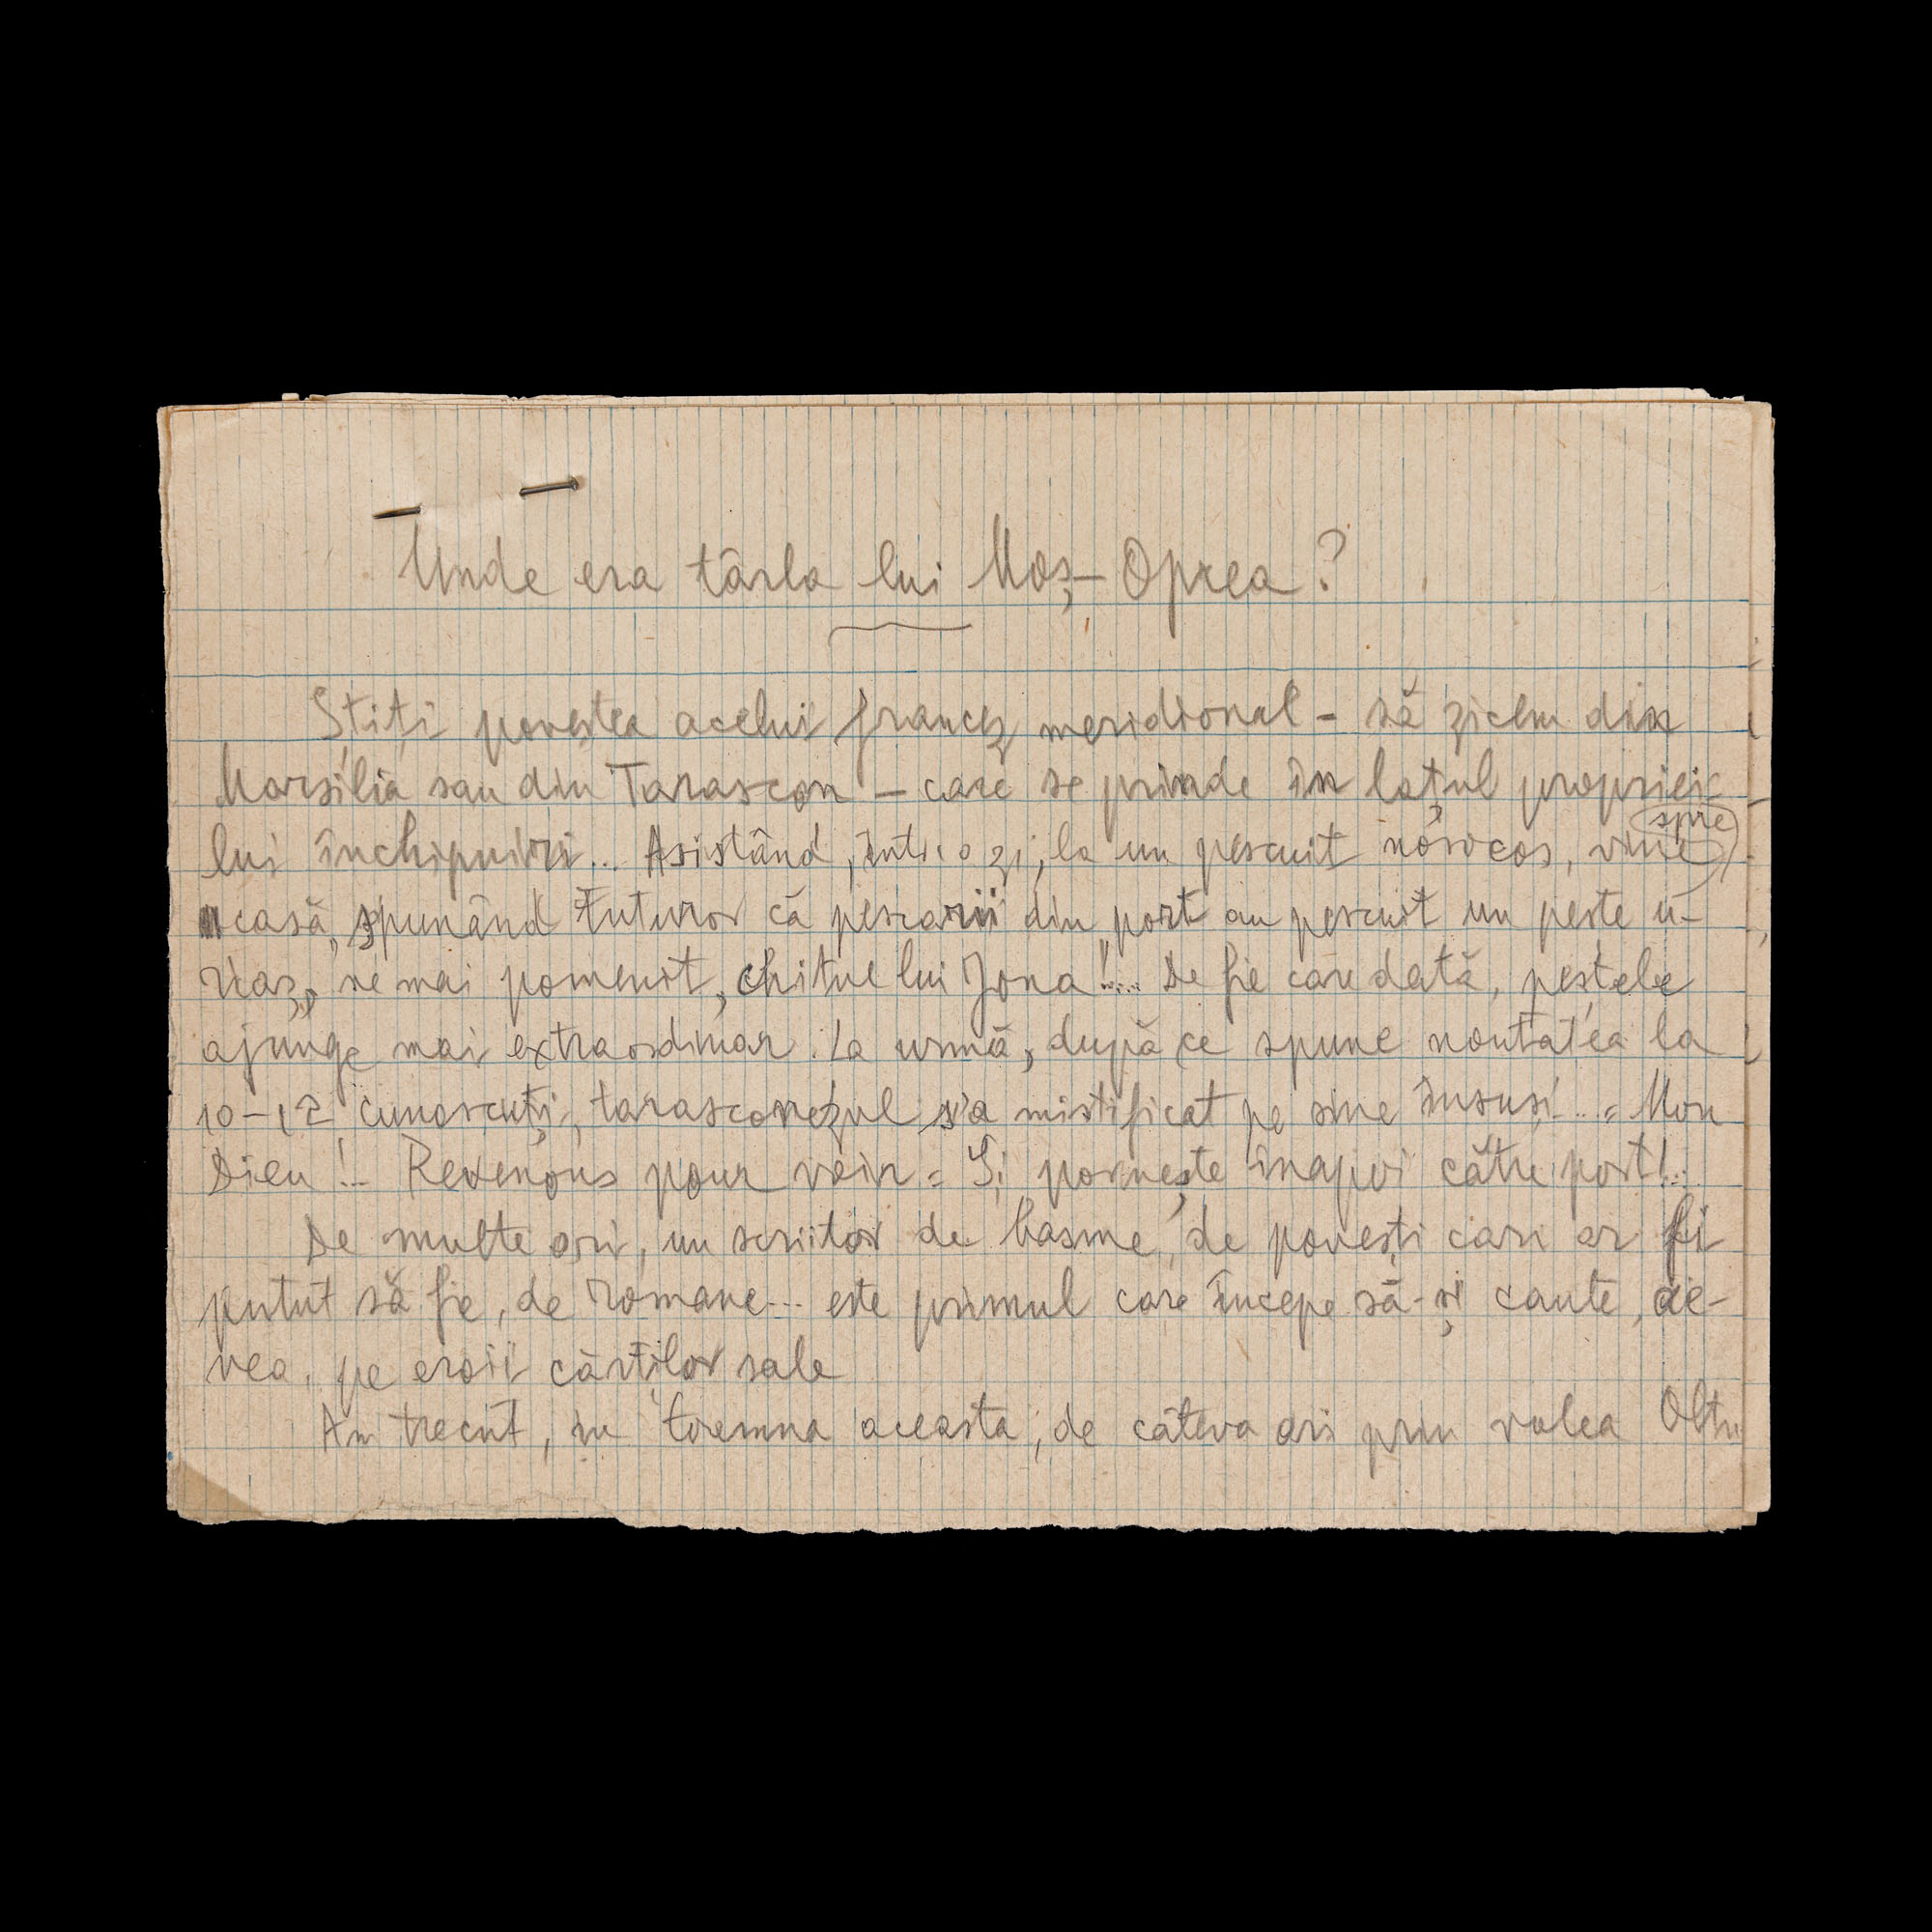 Unde era târla lui Moș-Oprea?
Știți povestea acelui francez meridional - să zicem din
Marsilia sau din Tarascon - care se prinde în lațul propriei
lui închipuiri... Asistând, într'o zi, la un pescuit norocos, vine spre
casă, spunând tuturor că pescarii din port au pescuit un pește u-
riaș, ne mai pomenit, chitul lui Jona!... De fie care dată, peștele
ajunge mai extraordinar. La urmă, după ce spune noutatea la
10-12 cunoscuți, tarasconezul s'a mistificat pe sine însuși... = Mon
Dieu!... Revenons pour voir = Și pornește înapoi către port!..
De multe ori, un scriitor de basme, de povești cari ar fi
putut să fie, de romane... este primul care începe să-și caute, aie-
vea, pe eroii cărților sale
Am trecut, în toamna aceasta, de câteva ori prin valea Oltu